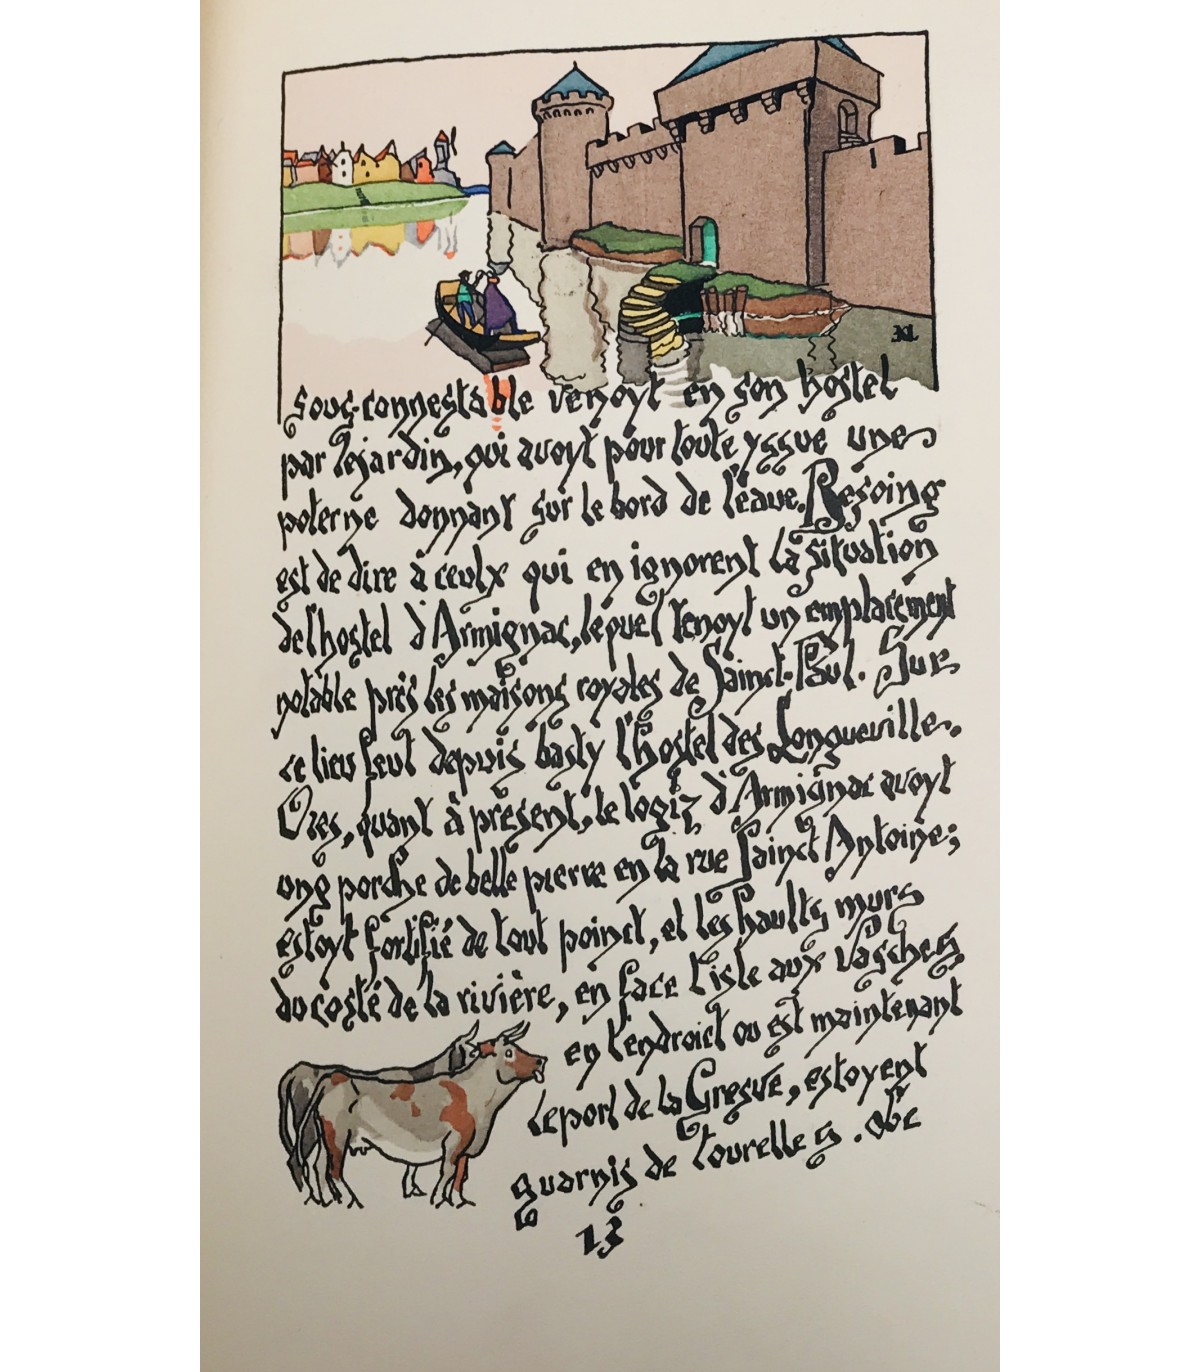 sous-connestable venoyt en son hostel
par le jardin, qui avoyt pour toute yssue une
poterne donnant sur le bord de l'eaue. Besoing
est de dire à ceulx qui en ignorent la situation
de l'hostel d'Armignac, lequel tenoyt un emplacement
notable près les maisons royales de Sainct-Paul. Sur
ce lieu feut depuis basty l'hostel des Longueville.
Ores, quant à présent, le logiz d'Armignac avoyt
ung porche de belle pierre en la rue Sainct Antoine;
estoyt fortifié de tout poinct, et les haults murs
du costé de la rivière, en face l'isle aux Vasches,
en l'endroict ou est maintenant
le port de la Gresve, estoyent
guarnis de tourelles.
13